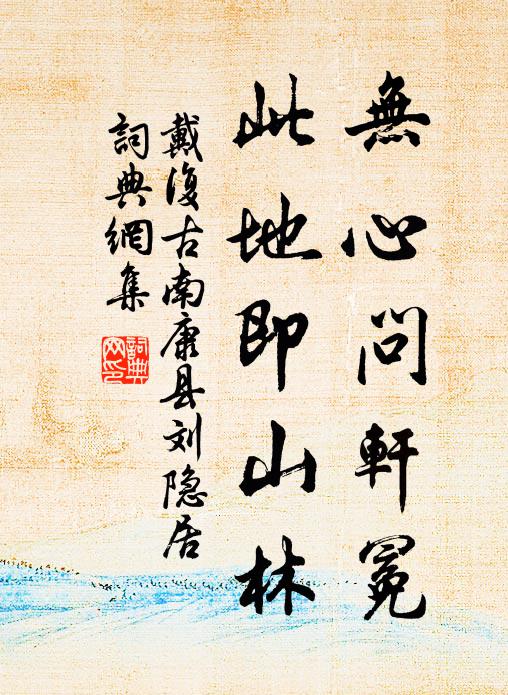 無心問軒冕
此地即山林
戴復古南康县刘隐居
詞典網集
詞典网印